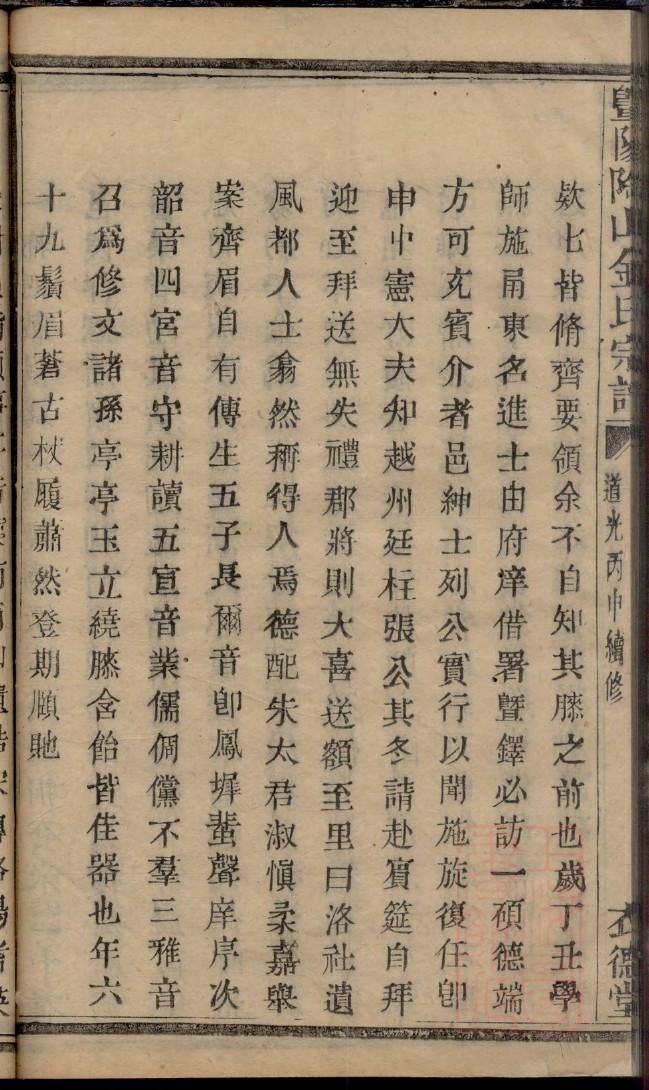 暨陽陶山金氏宗譜 道光丙申續修 衣德堂
欵匕皆脩齊要領余不自知其膝之前也歲丁丑學
師施甬東名進士由府庠借署暨鐸必訪一碩德端
方可充賓介者邑紳士列公實行以聞施旋復任卽
申中憲大夫知越州廷柱張公其冬請赴賓筵自拜
迎至拜送無失禮郡將則大喜送額至里曰洛社遺
風都人士翕然稱得人焉德配朱太君淑愼柔嘉舉
案齊眉自有傳生五子長爾音卽鳳墀蜚聲庠序次
韶音四宮音守耕讀五宣音業儒倜儻不羣三雅音
召爲修文諸孫亭亭玉立繞膝含飴皆佳器也年六
十九鬚眉蒼古杖履蕭然登期頤貤